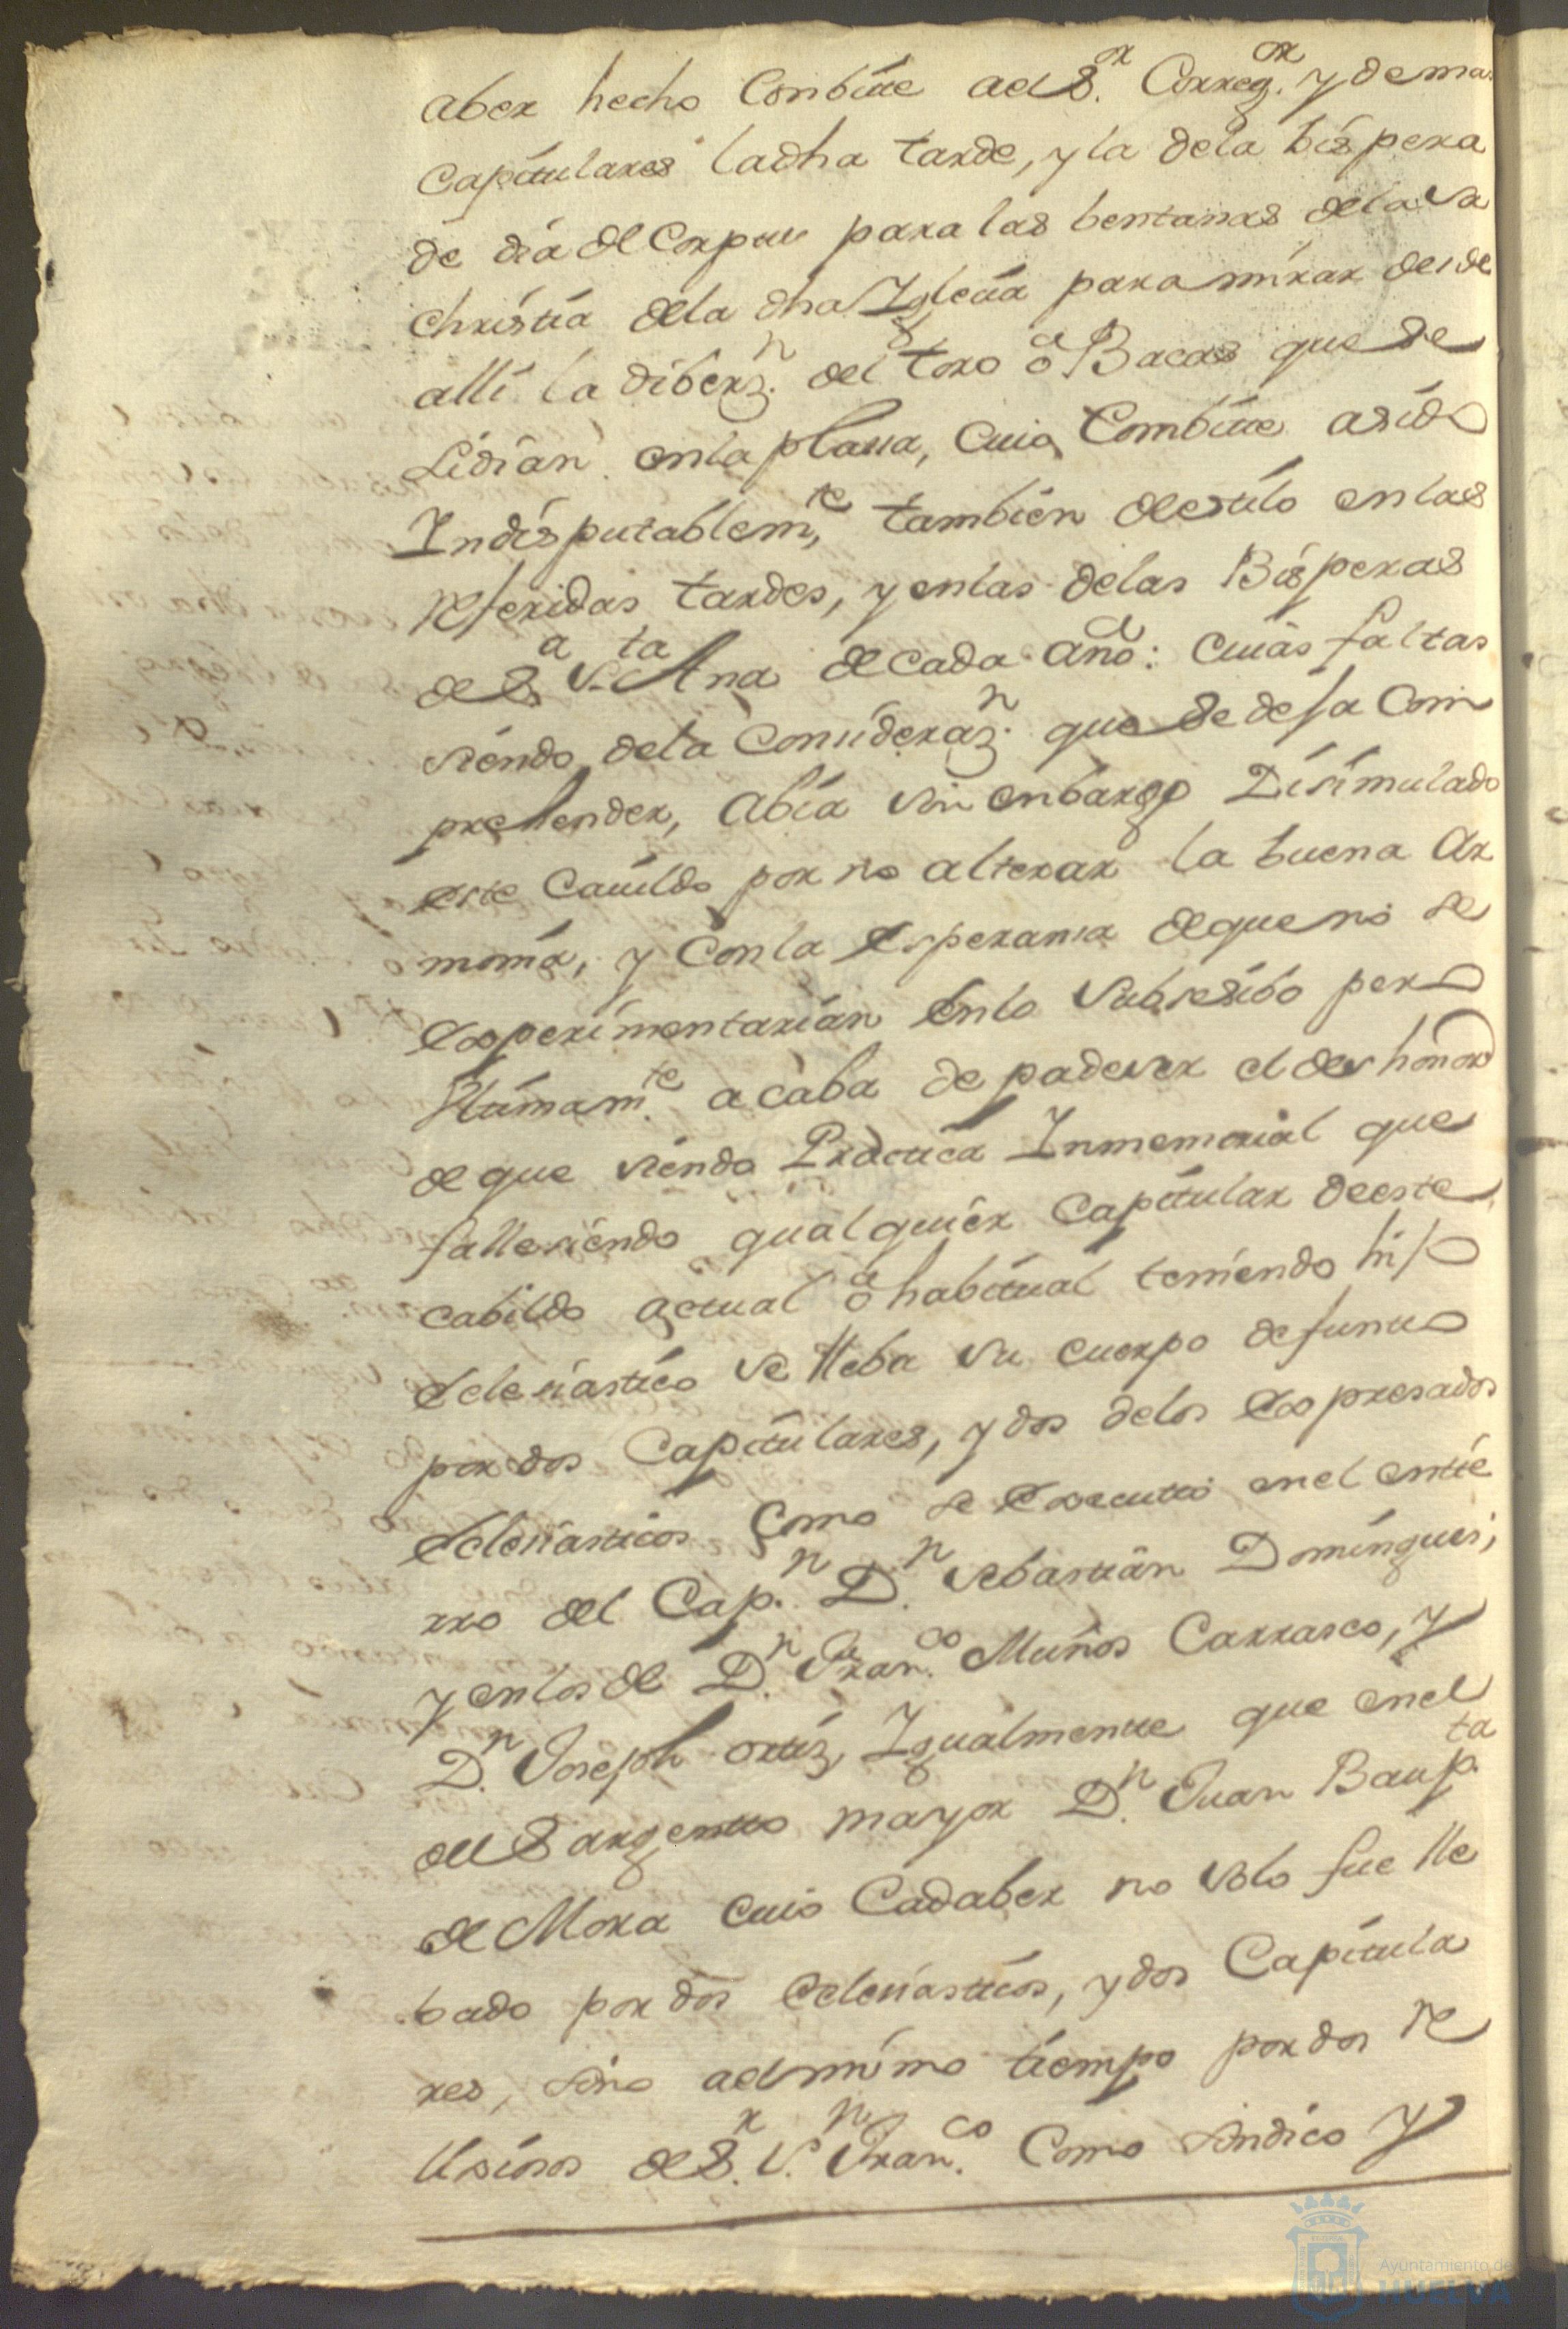 aber hecho Conbite al S.r Correg.or y demas
Capitulares la dha tarde, y la dela bispera
de dia de Corpus para las bentanas dela Sa
christia dela dha Iglesia para mirar desde
alli la diberz.n del toro ô Bacas que se
Lidian en la plasa, cuio Combite a sido
Indisputablem.te tambien de estilo en las
referidas tardes, y en las delas Bisperas
de S.a S.ta Ana de cada año: cuias faltas
siendo dela Consideraz.n que se desa Com
prehender, abia sin enbargo Disimulado
este Cauildo por no alterar la buena Ar
monia, y con la esperansa de que no se
experimentarian en lo Subsesibo pero
Vltimam.te acaba de padeser el deshonor
de que siendo Practica Inmemorial que
fallesiendo qualquier Capitular de este
cabildo actual ô habitual teniendo hijo
eclesiastico se lleba su cuerpo defunto
por dos Capitulares, y dos delos expresados
eclesiasticos como se executó en el entie
rro del Cap.n D.n Sebastian Domingues,
y en los de D.n Fran.co Muños Carrasco, y
D.n Joseph ortiz, Igualmente que en el
del Sargento mayor D.n Juan Baup.ta
de Mora cuio Cadaber no solo fue lle
bado por dos eclesiasticos, y dos Capitula
res, sino al mismo tiempo por dos re
lisiosos de S.r S.n Fran.co Como sindico y
Ayuntamiento de
HUELVA